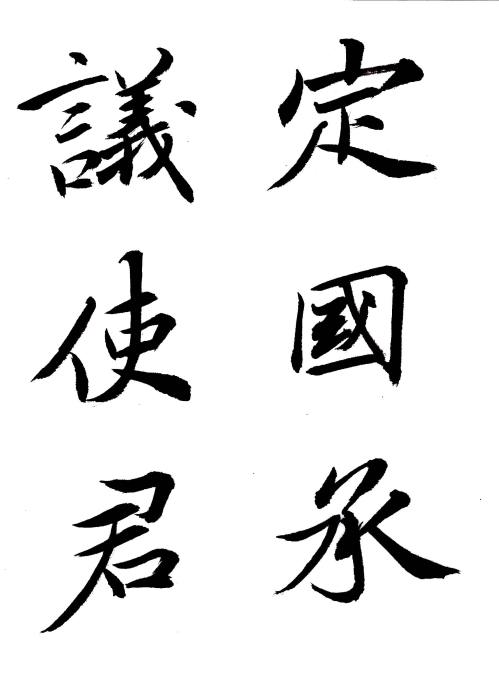 定國承
議使君